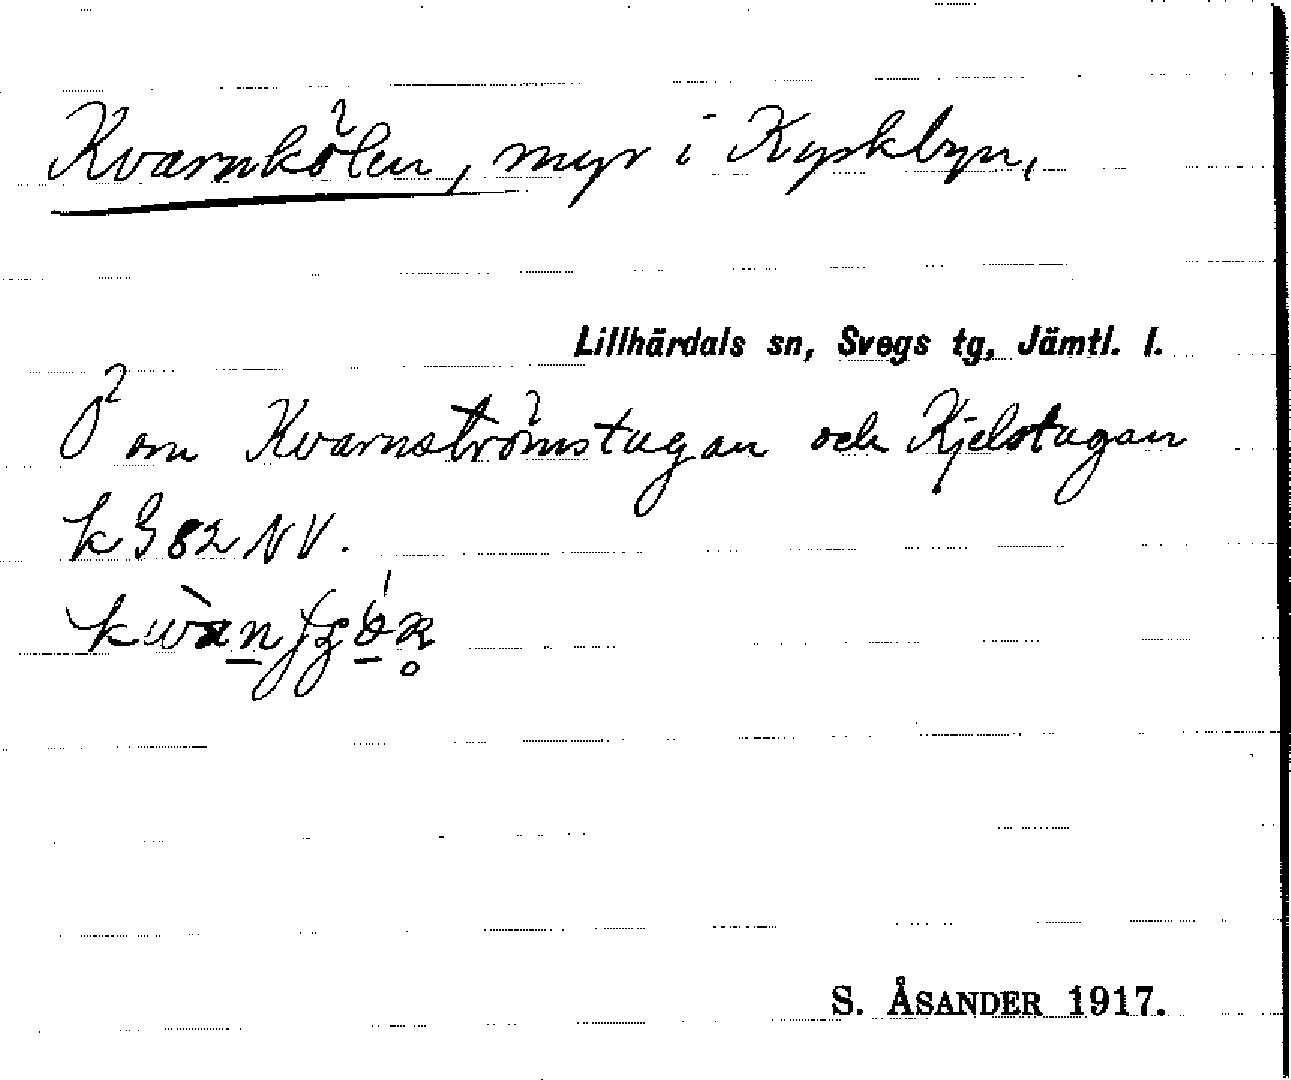 Kvarnkölen, myr i Kyrkbyn,
Lillhärdals sn, Svegs tg, Jämtl. l.
Ö om Kvarnströmstugan och Kjelstugan
k 382 NV.
S. ÅSANDER 1917.